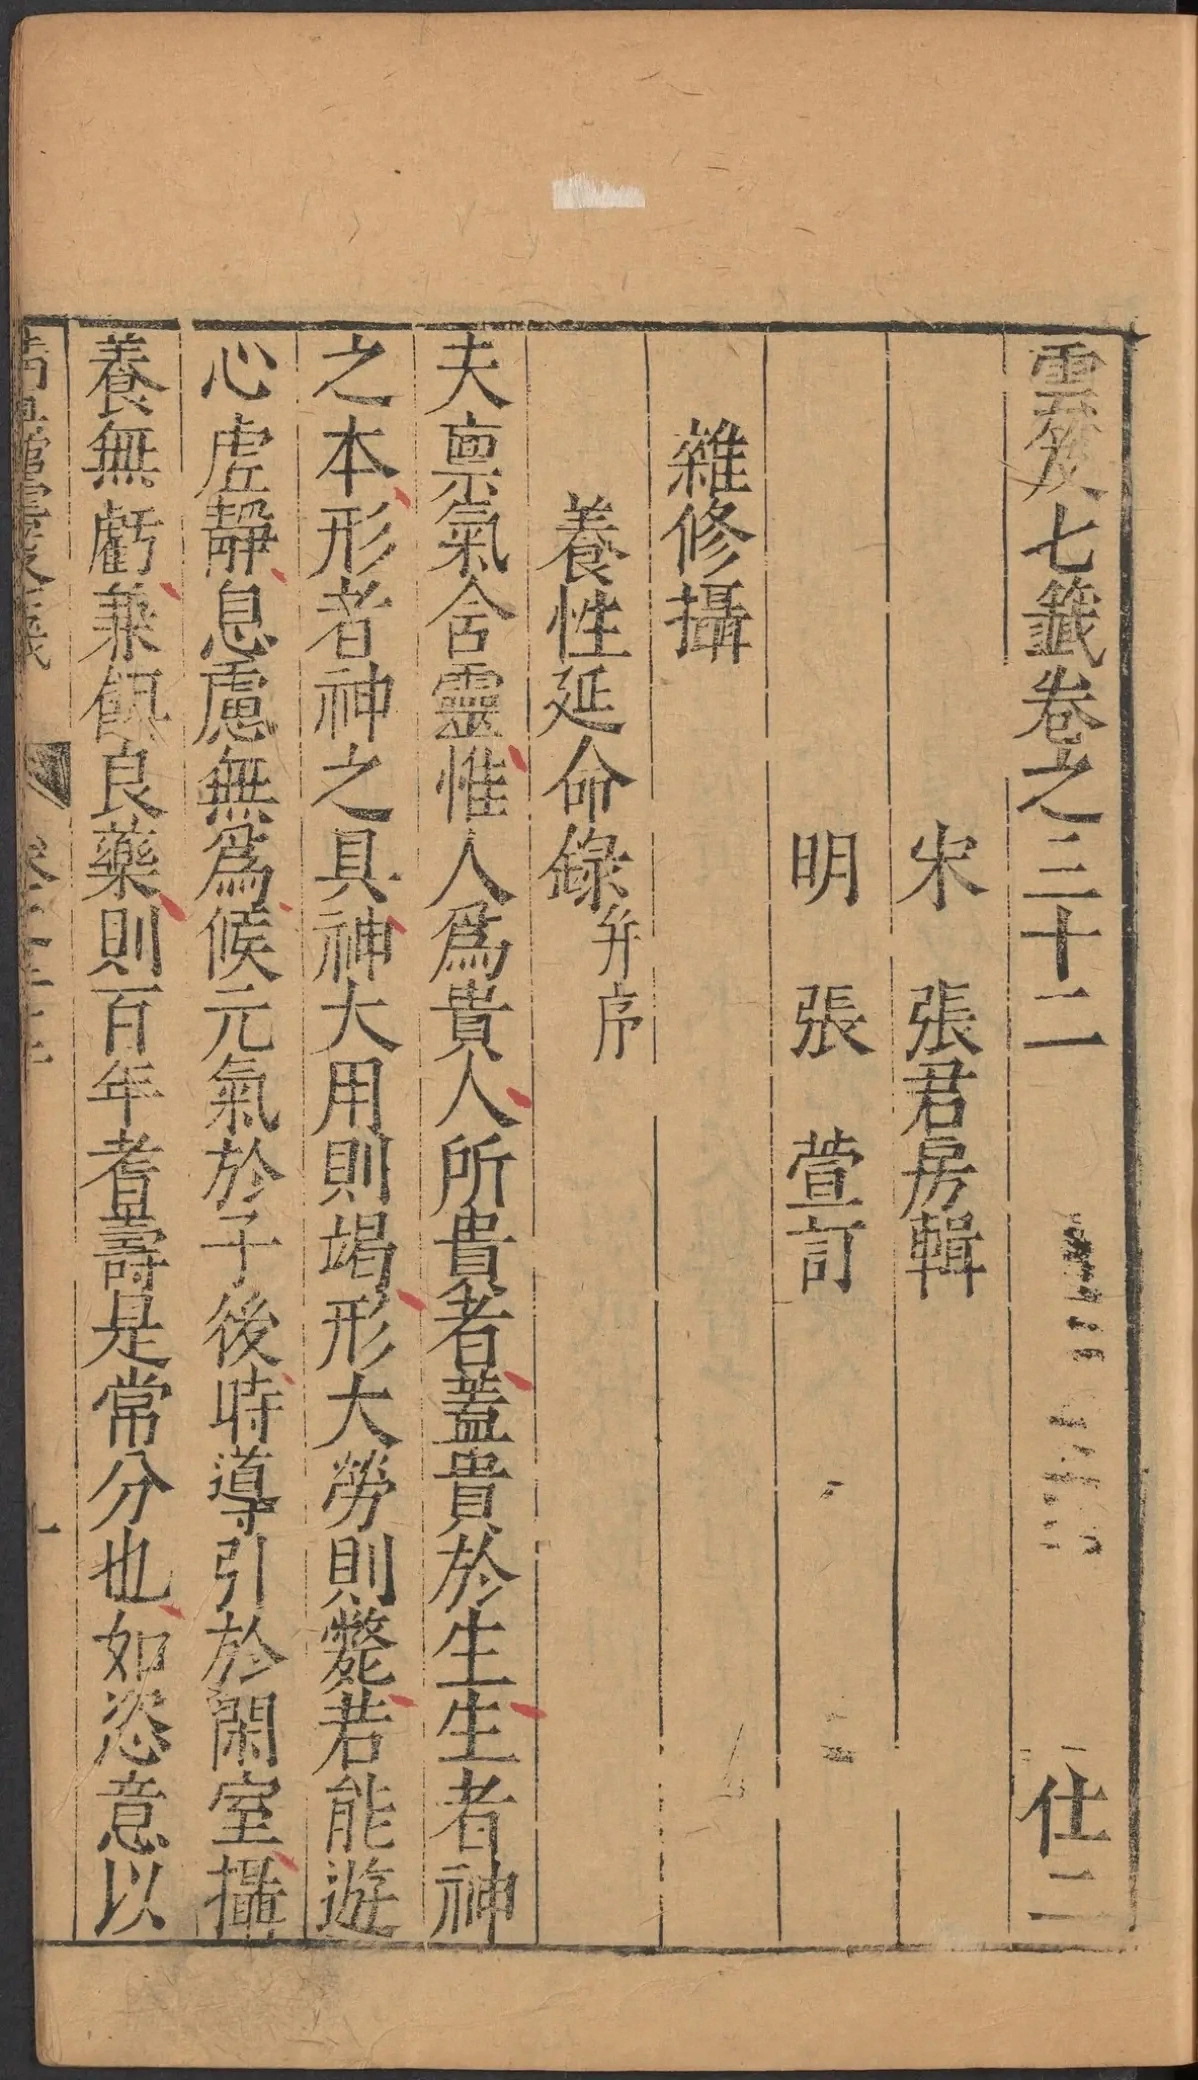 雲笈七籤卷之三十二 仕二
宋 張君房輯
明 張 萱訂
雜修攝
養性延命錄并序
夫禀氣含靈惟人爲貴人所貴者蓋貴於生生者神
之本形者神之具神大用則竭形大勞則斃若能遊
心虛靜息慮無爲候元氣於子後時導引於閑室攝
養無虧兼餌良藥則百年耆壽是常分也如恣意以